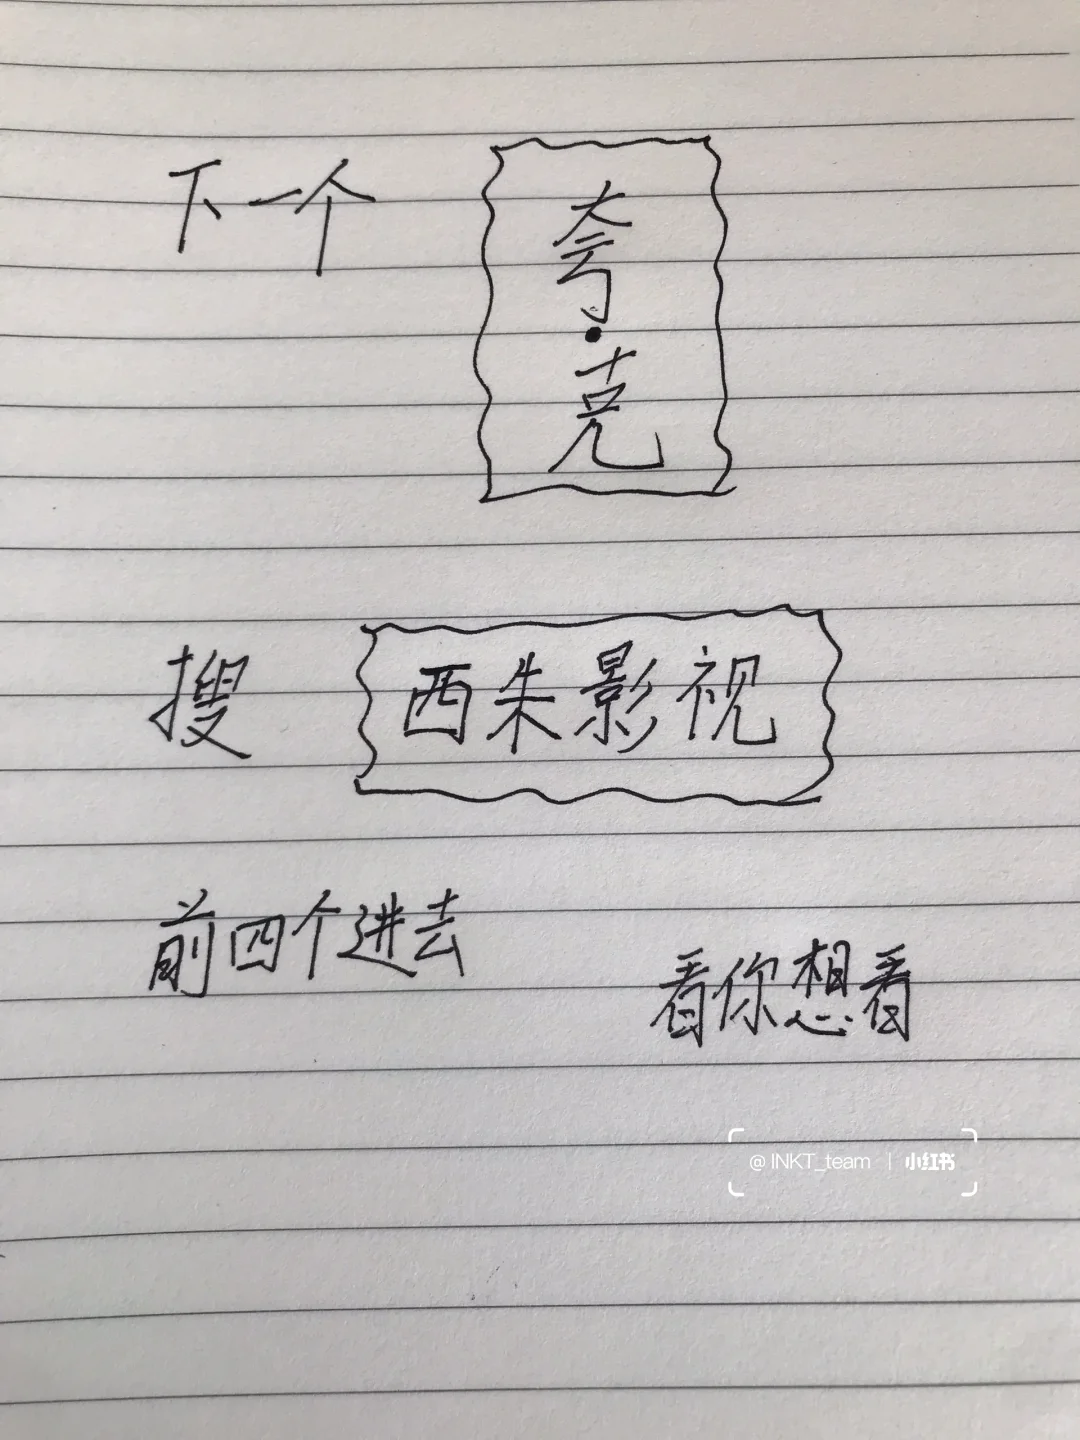 下一个
夸·克
搜 西朱影视
前四个进去
看你想看
@INKT_team | 小红书